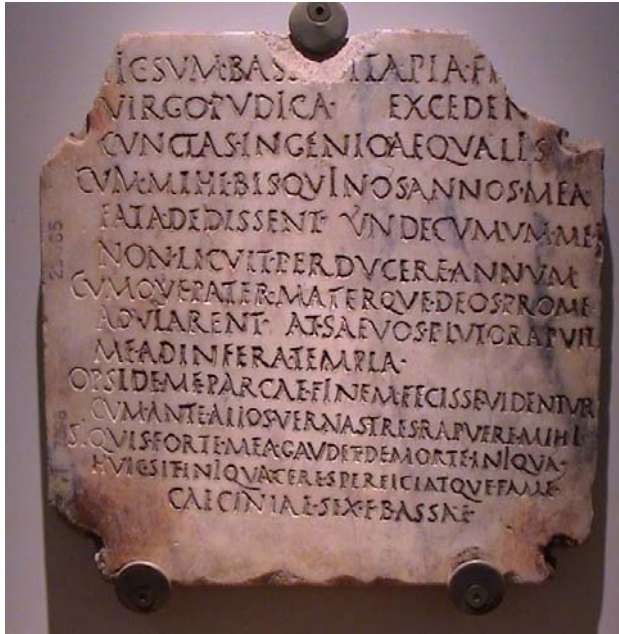 ICSVM·BAS ITAPIA·F
VIRGO·PVDICA· EXCEDEN
CVNCTAS·INGENIO·AEQVALIS
CVM·MIHI·BIS·QVINOS·ANNOS·MEA·
FATA·DEDISSENT· VNDECVMVM·ME
NON·LICVIT·PERDVCERE·ANNVM
CVMQVE·PATER·MATERQVE·DEOS·PRO·ME
ADVLARENT· AT·SAEVOS·PLVTO·RAPVIT
ME·AD·INFERA·TEMPLA·
OPSIDE·ME·PARCAE·FINEM·FECISSE·VIDENTVR
CVM·ANTE·ALIOS·VERNAS·TRES·RAPVERE·MIHI·
SIQVIS·FORTE·MEA·GAVDET·DE·MORTE·INIQVA·
HVIC·SIT·INIQVA·CERES·PERFICIATQVE·FAME·
CAECINIAE·SEX·F·BASSAE